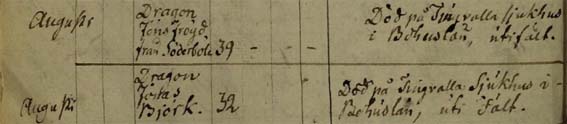 Augusti
Dragon
Jöns Fröijd
från Söderbole 39 - -
Död på Tingvalla Sjukhus
i Bohuslän, uti fält.
Augusti
Dragon
Jonas
Björk. 32
Död på Tingvalla Sjukhus i
Bohuslän, uti Fält.